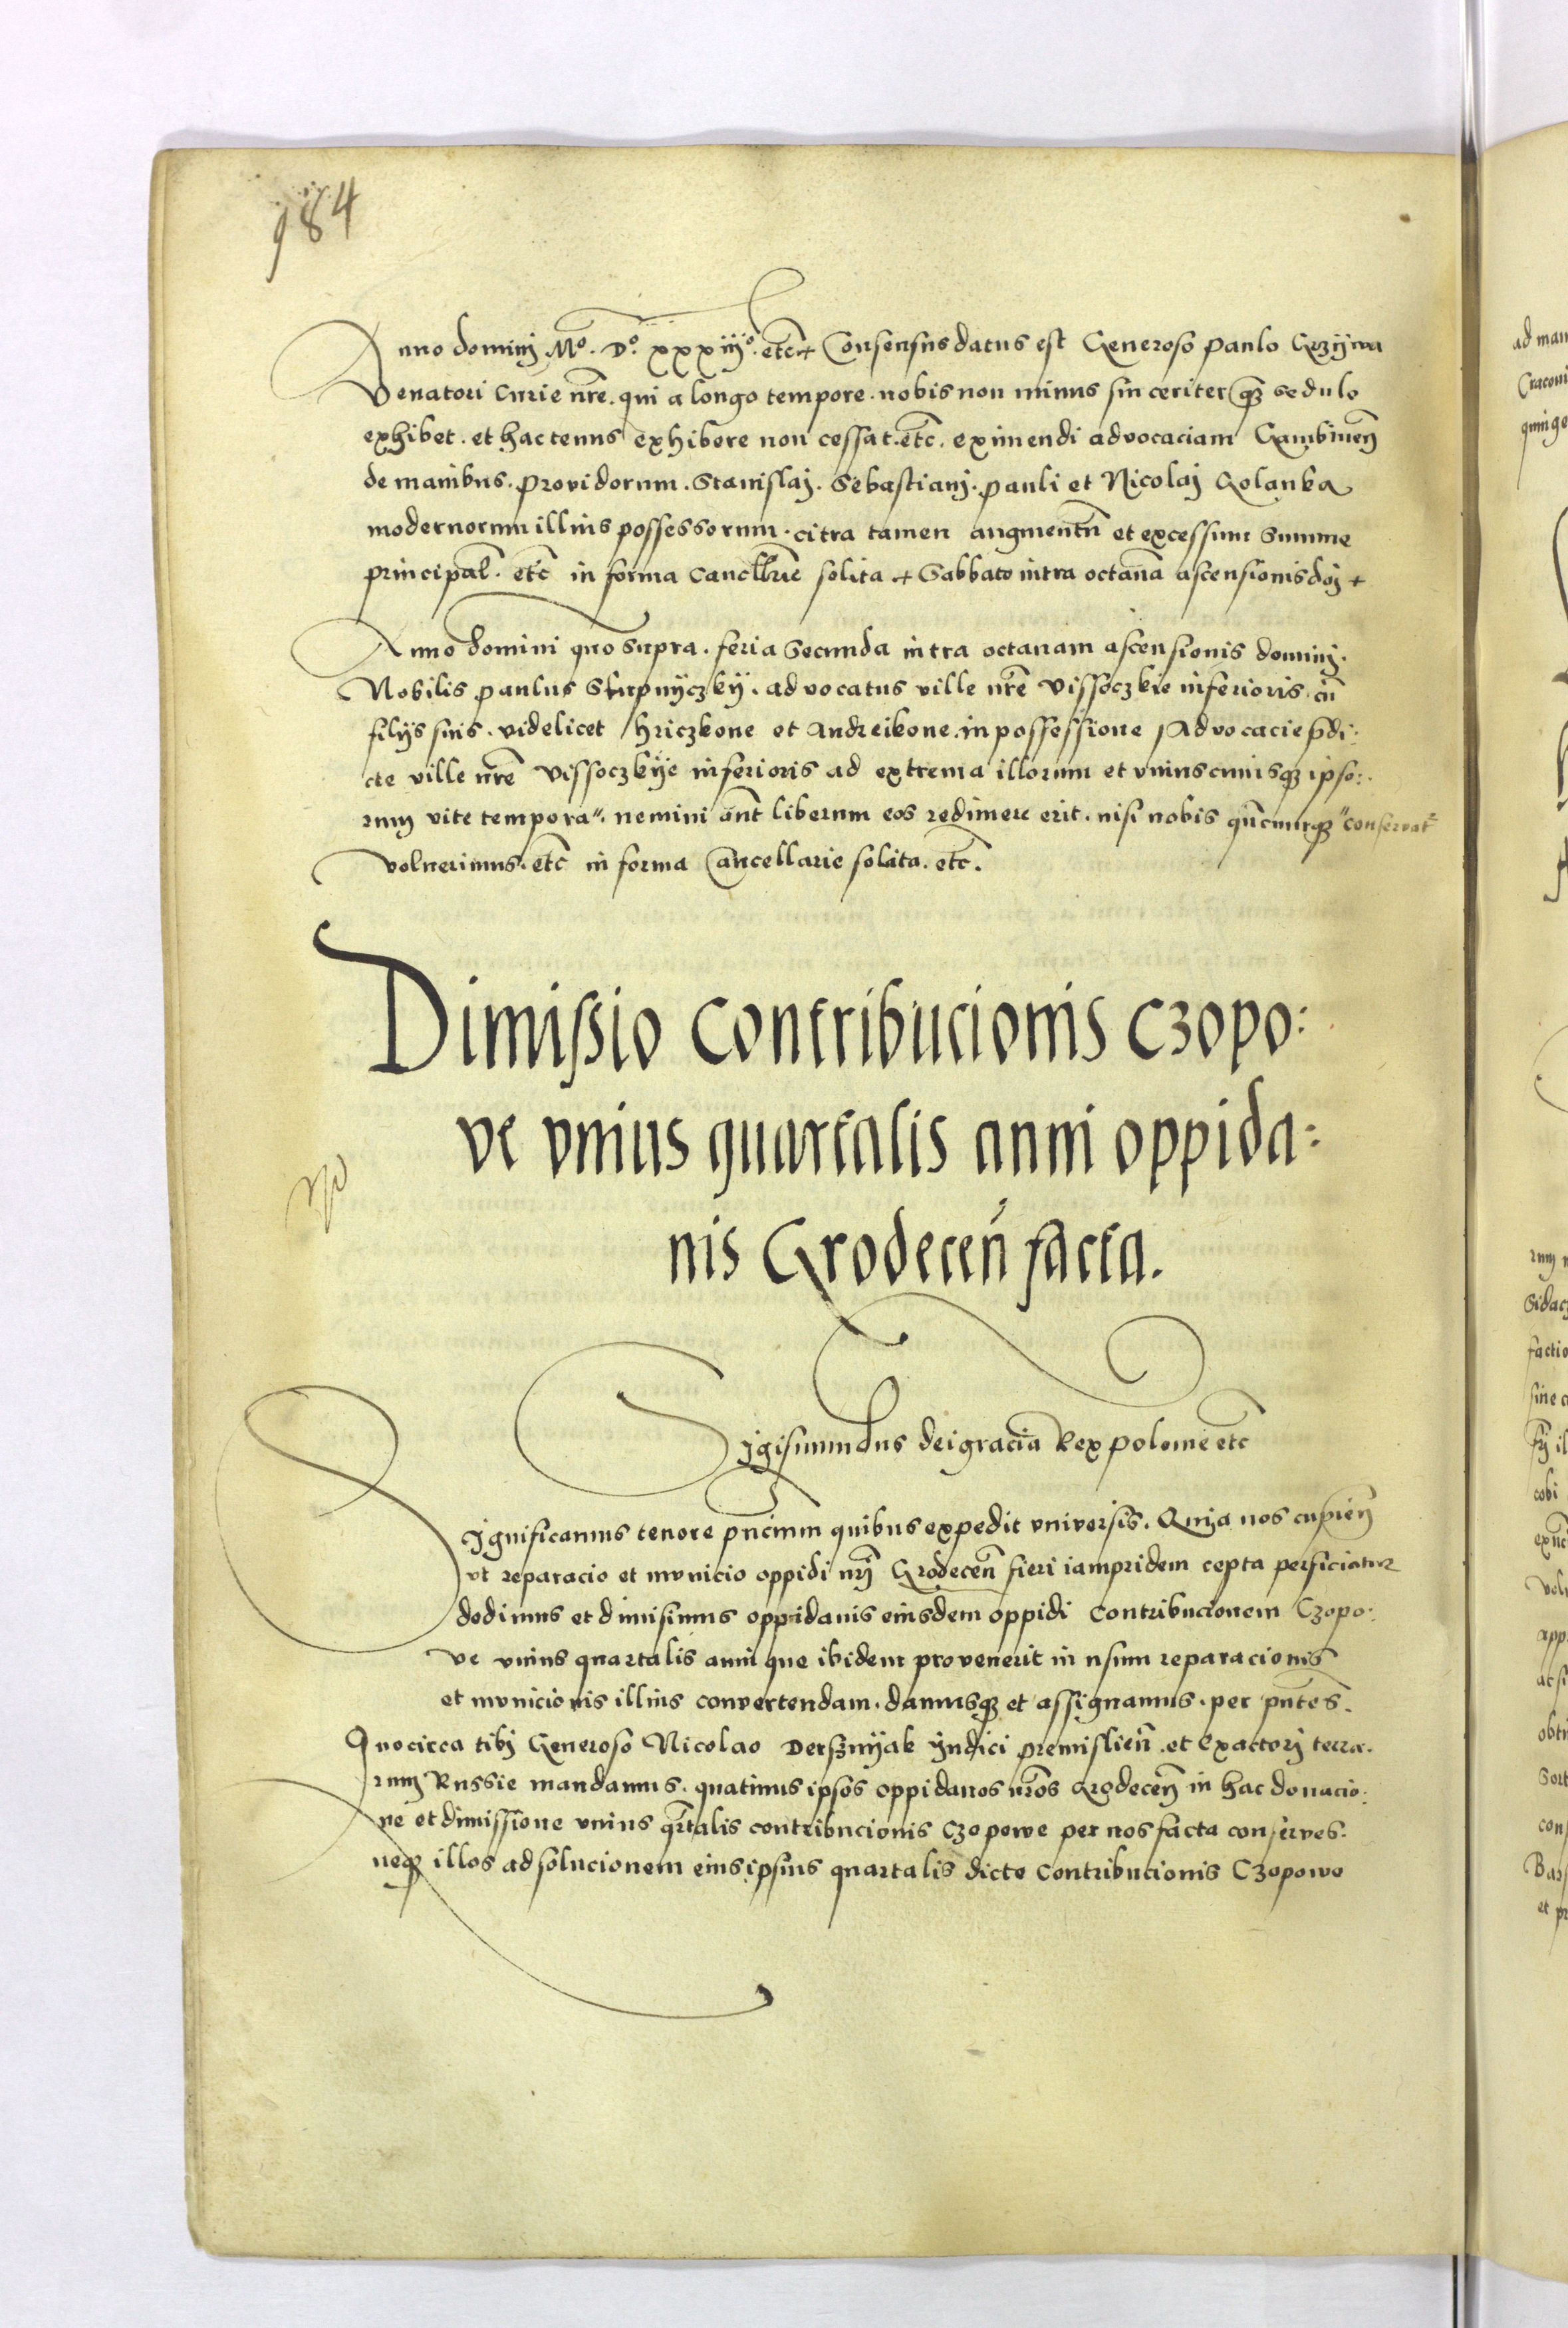 984
Anno dominj Mo. Do. xxxiijo. etc+ Consensus datus est Generoso Paulo Grzÿwa
Venatori Curie nr̃e. qui a longo tempore. nobis non minus sinceriter q̃ꝫ sedulo
exhibet. et hactenus exhibere non cessat. etc̃. eximendi advocaciam Gambineñ
de manibus. providorum. Stanislaj. Sebastianj. Pauli et Nicolaj Golanka
modernorum illius possessorum. citra tamen augmentũ et excessum summe
principal̃. etc̃ in forma Cancll̃rie solita + Sabbato intra octauã ascensionis dñj +
Anno domini quo supra. feria secunda intra octauam ascensionis dominj.
Nobilis paulus Stupnÿczkÿ. advocatus ville nr̃e Vissoczkie inferioris. cũ
filÿs suis. videlicet hriczkone et Andreikone. in possessione Advocacie p̃di:
cte ville nr̃e Vissoczkÿe inferioris ad extrema illorum et vniuscuiusqꝫ ipso:
rum vite tempora". nemini añt liberum eos redimere erit. nisi nobis qũcunqꝫ "conservat̃
voluerimus. etc̃ in forma Cancellarie solita. etc̃.
Dimissio Contribucionis Czopo:
ve vnius quartalis anni oppida:
nis Grodeceñ facta.
Sigismundus dei gracia Rex polonie etc̃
Significamus tenore pñcium quibus expedit vniversis. Quia nos cupieñ
vt reparacio et municio oppidi nr̃j Grodeceñ fieri iampridem cepta perficiatur
dedimus et dimisimus oppidanis eiusdem oppidi Contribucionem Czopo:
ve vnius quartalis anni que ibidem provenerit in usum reparacionis
et municionis illius convertendam. damusqꝫ et assignamus. per pñtes.
Quocirca tibj Generoso Nicolao Dersznÿak Jndici premislieñ. et Exactorj terra.
rum Russie mandamus. quatinus ipsos oppidanos nr̃os Grodeceñ in hac donacio:
ne et dimissione vnius qr̃talis contribucionis Czopowe per nos facta conserves.
neqꝫ illos ad solucionem eius ipsius quartalis dicte Contribucionis Czopowe